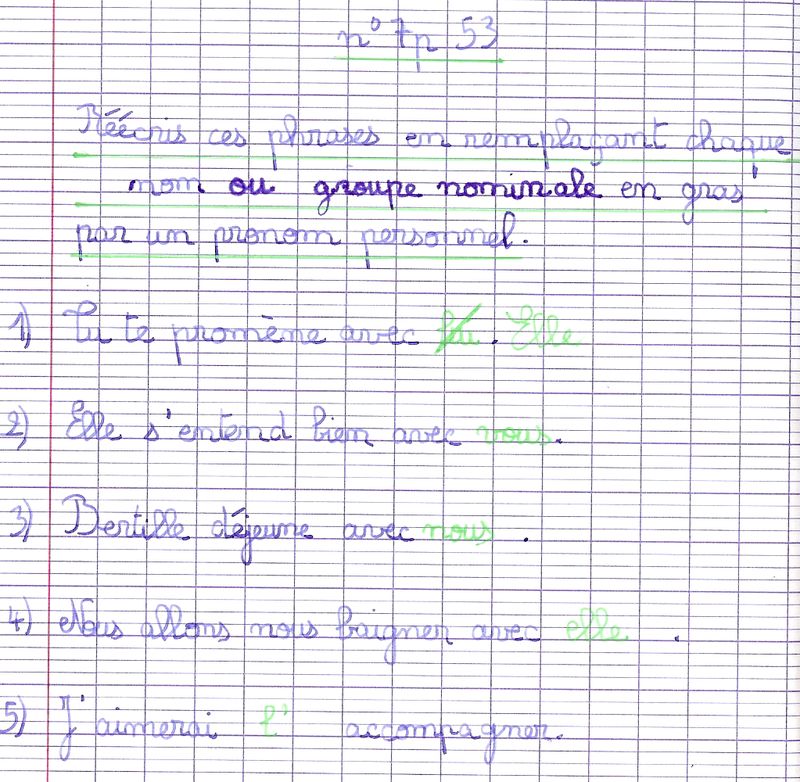 n° 7p 53
Réécris ces phrases en remplaçant chaque
nom ou groupe nominale en gras
par un pronom personnel.
1) Tu te promène avec lui. Elle
2) Elle s'entend bien avec vous.
3) Bertille déjeune avec nous.
4) Nous allons nous baigner avec elle.
5) J'aimerai l' accompagner.